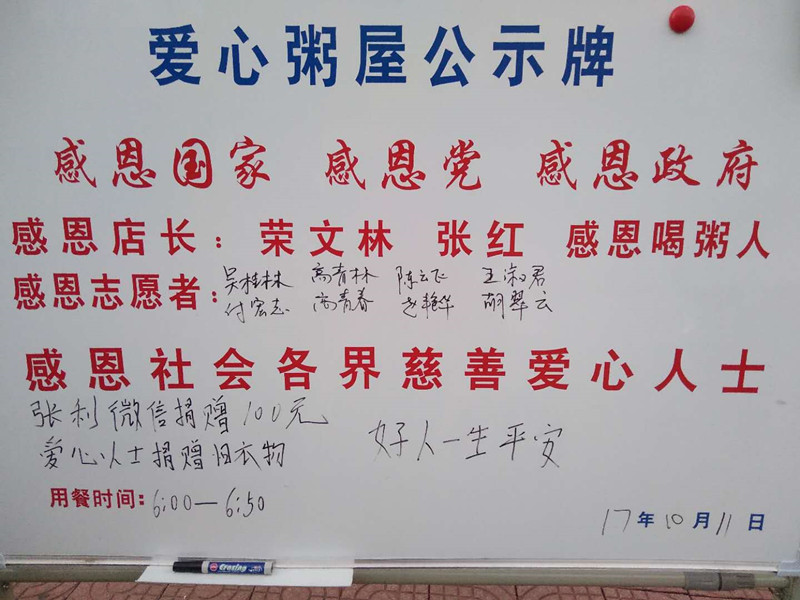 爱心粥屋公示牌
感恩国家 感恩党 感恩政府
感恩店长：荣文林 张红 感恩喝粥人
感恩志愿者：吴桂林 高青林 陈云飞 王淑君
付宏志 尚青春 赵艳华 胡翠云
感恩社会各界慈善爱心人士
张利微信捐赠100元
爱心人士捐赠旧衣物
好人一生平安
用餐时间：6:00—6:50
17年10月11日